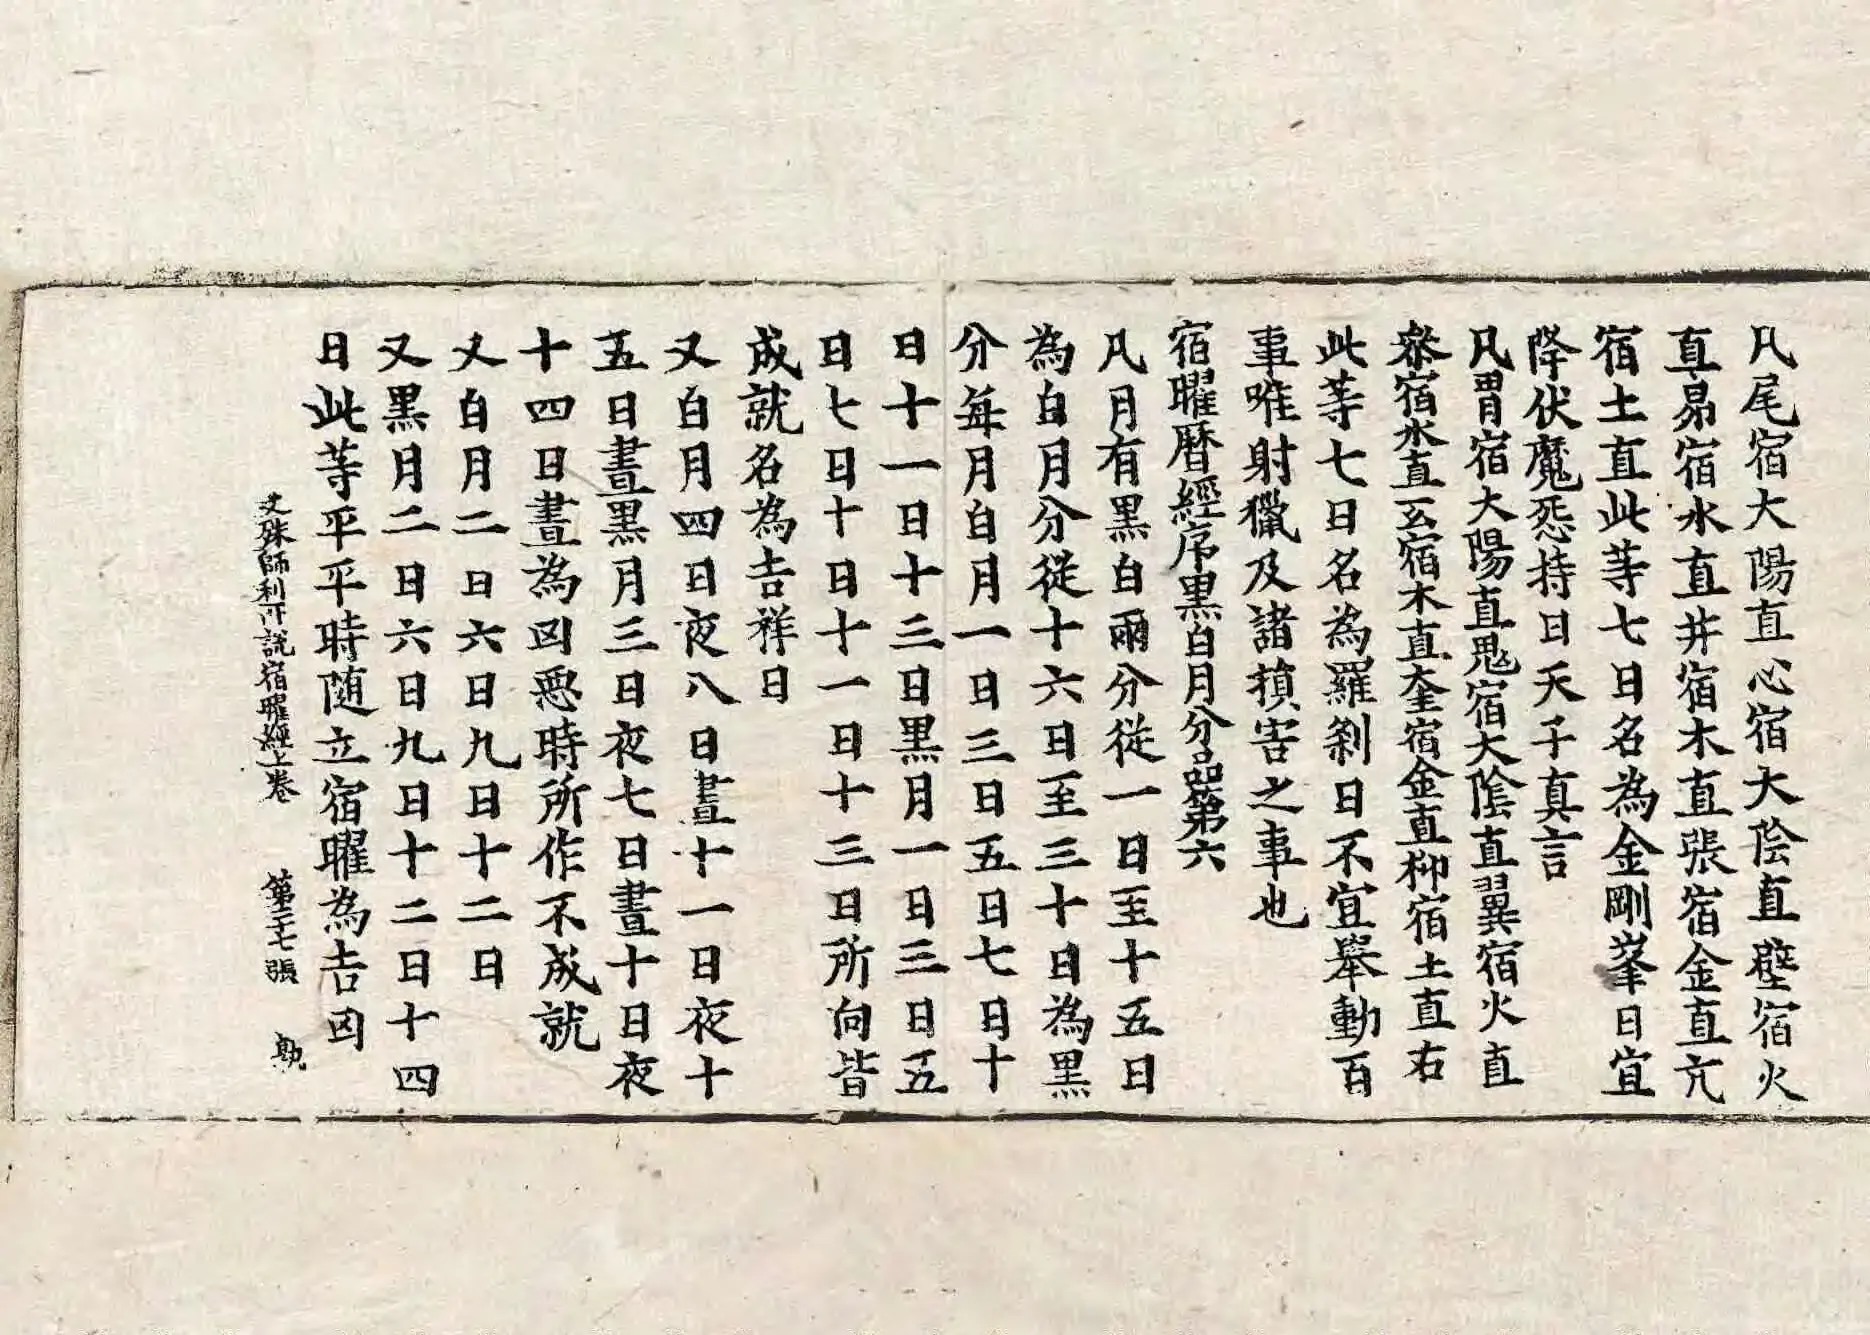 凡尾宿大陽直心宿大陰直壁宿火
直昴宿水直井宿木直張宿金直亢
宿土直此等七日名為金剛峯日宜
降伏魔怨持日天子真言
凡胃宿大陽直鬼宿大陰直翼宿火直
叅宿水直氐宿木直奎宿金直柳宿土直右
此等七日名為羅剎日不宜舉動百
事唯射獵及諸損害之事也
宿曜曆經序黑白月分品第六
凡月有黑白兩分從一日至十五日
為白月分從十六日至三十日為黑
分每月白月一日三日五日七日十
日十一日十三日黑月一日三日五
日七日十日十一日十三日所向皆
成就名為吉祥日
又白月四日夜八日晝十一日夜十
五日晝黑月三日夜七日晝十日夜
十四日晝為凶惡時所作不成就
又白月二日六日九日十二日
又黑月二日六日九日十二日十四
日此等平平時随立宿曜為吉凶
文殊師利所說宿曜經上卷 第二七張 勛